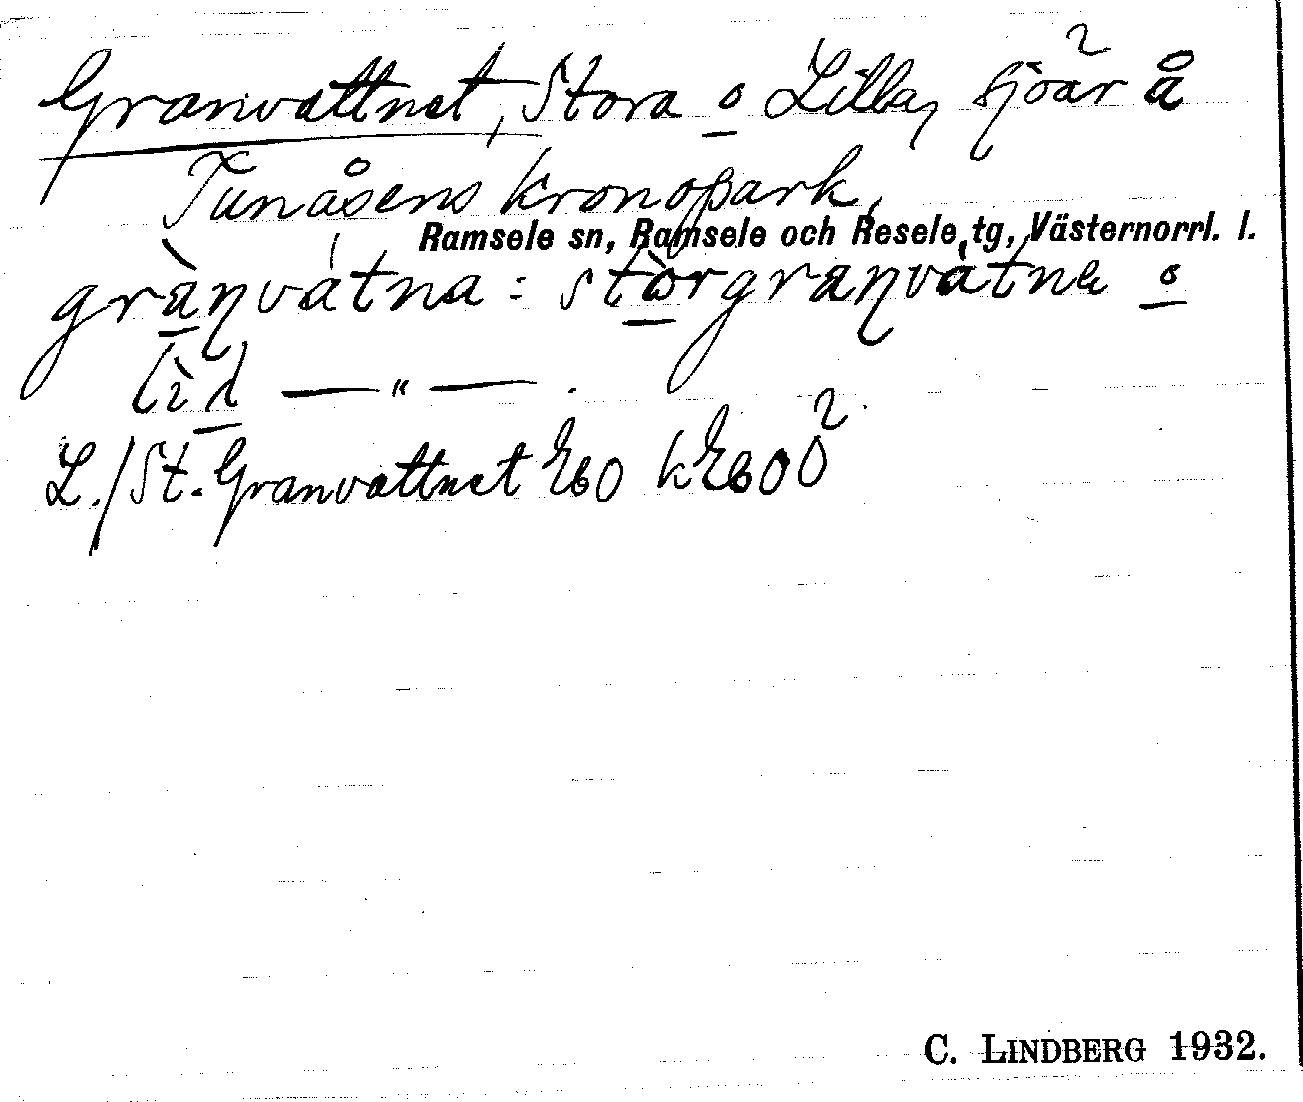 Granvattnet, Stora o Lilla, sjöar å
Tunåsens kronopark,
Ramsele sn, Ramsele och Resele tg, Västernorrl. l.
grànvátna : stòrgranvátna o
lìl —"— .
L./St. Granvattnet
C. LINDBERG 1932.